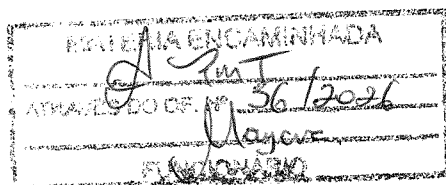 MATÉRIA ENCAMINHADA
A PMT
ATRAVÉS DO OF. Nº 36/2026
FUNCIONÁRIO